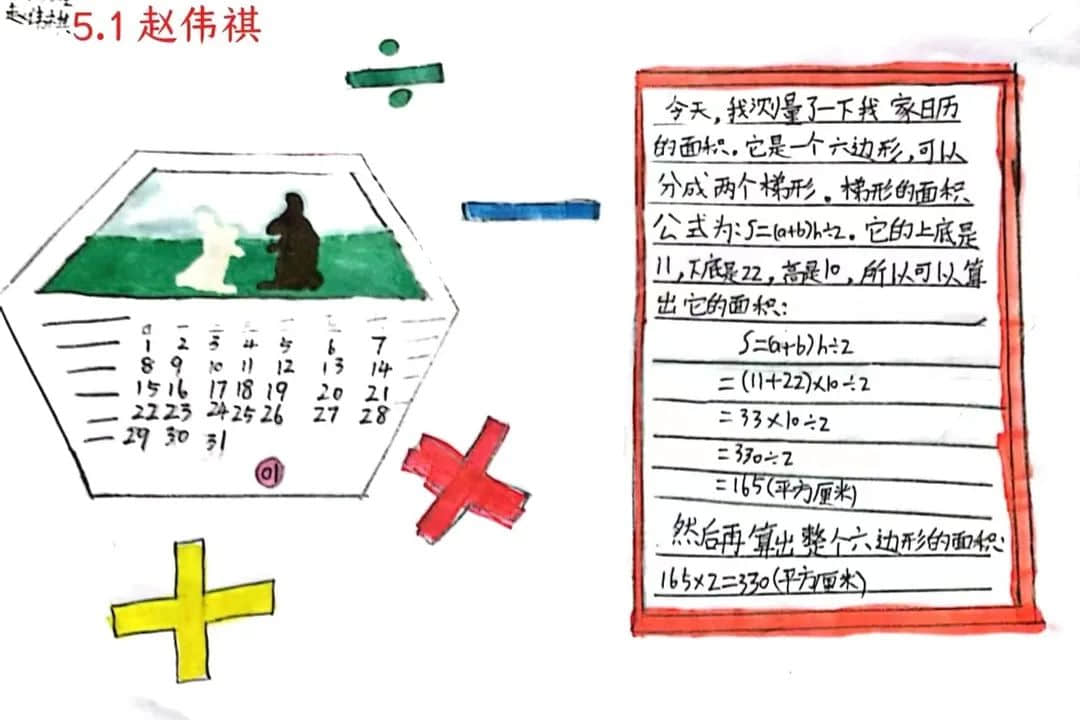 赵伟祺
5.1 赵伟祺
÷
—
今天,我测量了一下我家日历
的面积。它是一个六边形,可以
分成两个梯形。梯形的面积
公式为:S=(a+b)h÷2。它的上底是
11,下底是22,高是10,所以可以算
出它的面积:
S=(a+b)h÷2
=(11+22)×10÷2
=33×10÷2
=330÷2
=165(平方厘米)
然后再算出整个六边形的面积:
165×2=330(平方厘米)
日 一 二 三
1 2 3 4 5 6 7
8 9 10 11 12 13 14
15 16 17 18 19 20 21
22 23 24 25 26 27 28
29 30 31
01
×
+